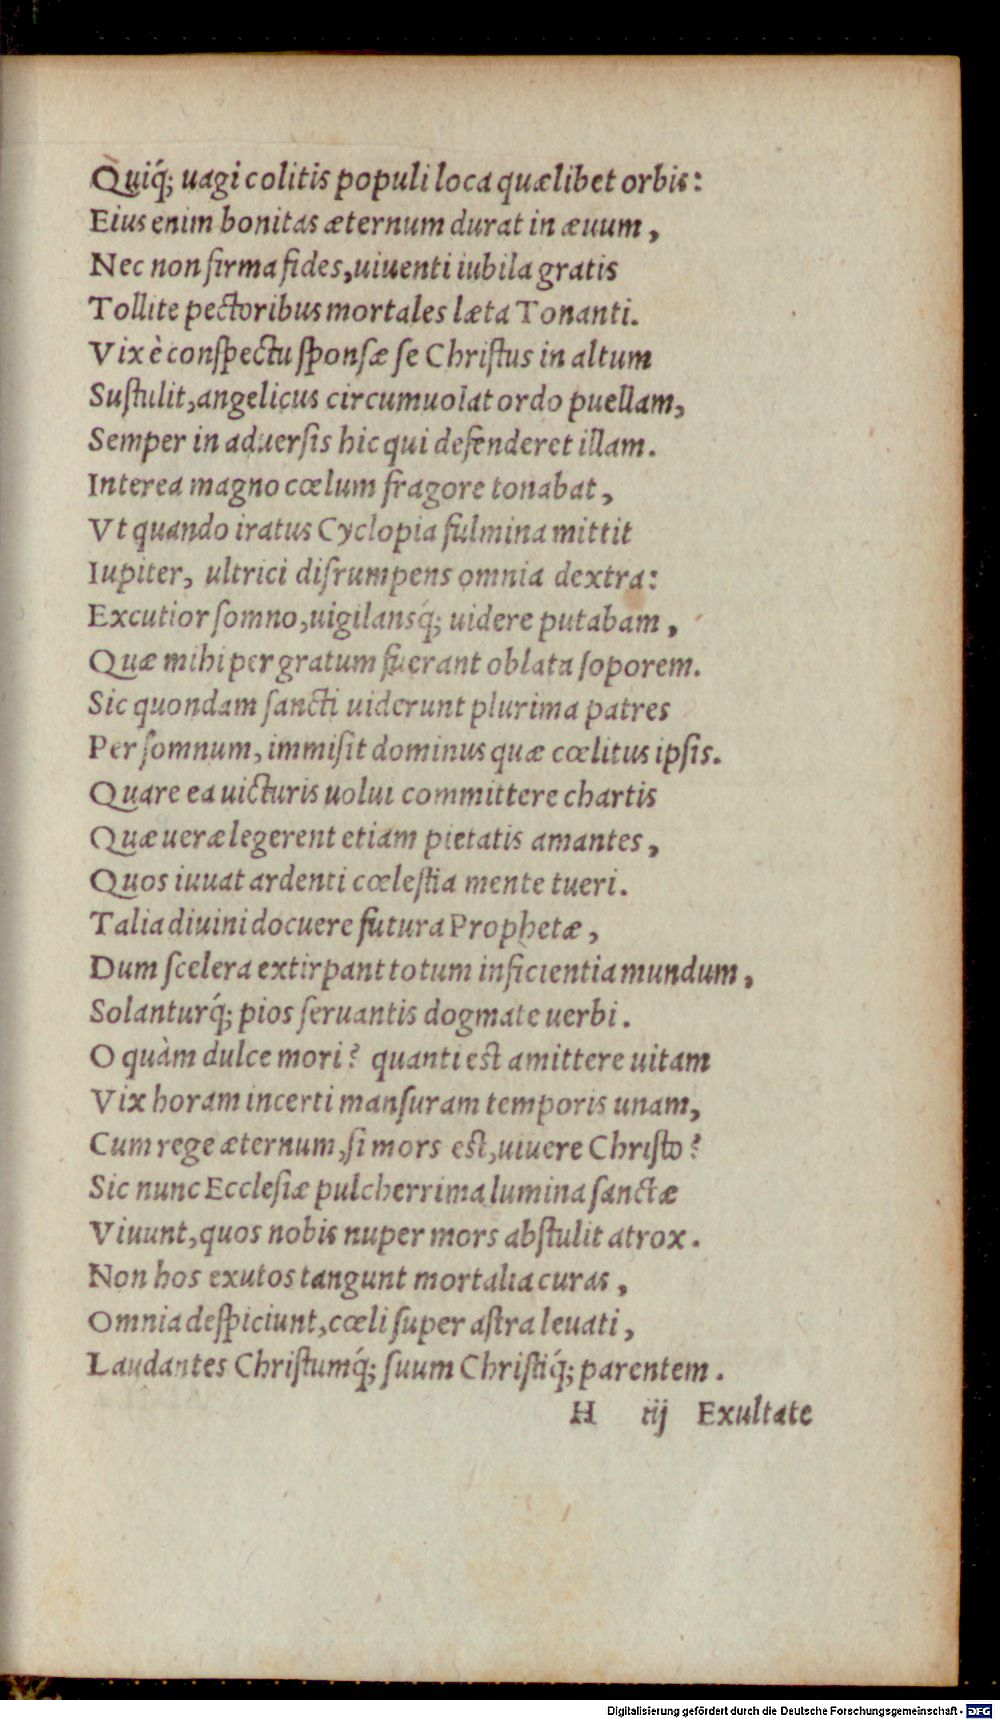 Quiq́; uagi colitis populi loca quælibet orbis:
Eius enim bonitas æternum durat in æuum,
Nec non firma fides, uiuenti iubila gratis
Tollite pectoribus mortales læta Tonanti.
Vix è conſpectu ſponſæ ſe Chriſtus in altum
Suſtulit, angelicus circumuolat ordo puellam,
Semper in aduerſis hic qui defenderet illam.
Interea magno cœlum fragore tonabat,
Vt quando iratus Cyclopia fulmina mittit
Iupiter, ultrici diſrumpens omnia dextra:
Excutior ſomno, uigilansq́; uidere putabam,
Quæ mihi per gratum fuerant oblata ſoporem.
Sic quondam ſancti uiderunt plurima patres
Per ſomnum, immiſit dominus quæ cœlitus ipſis.
Quare ea uicturis uolui committere chartis
Quæ ueræ legerent etiam pietatis amantes,
Quos iuuat ardenti cœleſtia mente tueri.
Talia diuini docuere futura Prophetæ,
Dum ſcelera extirpant totum inficientia mundum,
Solanturq́; pios ſeruantis dogmate uerbi.
O quàm dulce mori? quanti est amittere uitam
Vix horam incerti manſuram temporis unam,
Cum rege æternum, ſi mors est, uiuere Chriſto?
Sic nunc Eccleſiæ pulcherrima lumina ſanctæ
Viuunt, quos nobis nuper mors abſtulit atrox.
Non hos exutos tangunt mortalia curas,
Omnia deſpiciunt, cœli ſuper aſtra leuati,
Laudantes Chriſtumq́; ſuum Chriſtiq́; parentem.
H iij Exultate
Digitalisierung gefördert durch die Deutsche Forschungsgemeinschaft - DFG